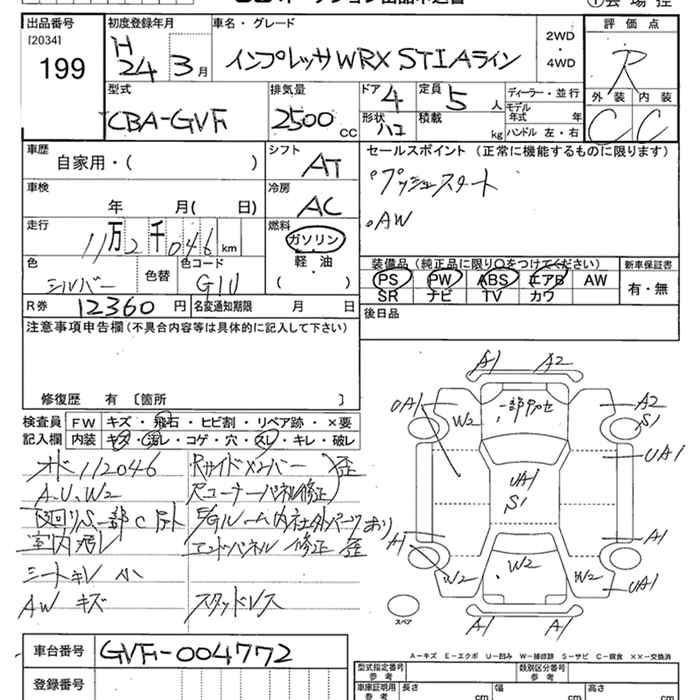 出品番号
[2034]
199
初度登録年月
H
24 3月
車名・グレード
インプレッサWRX STI Aライン
2WD
・
4WD
評価点
R
外装 内装
C C
型式
CBA-GVF
排気量
2500 cc
ドア 4
形状 ハコ
定員 5 人
積載 kg
ディーラー・並行
モデル年式 年
ハンドル 左・右
車歴
自家用・( )
シフト
AT
車検
年 月( 日)
冷房
AC
走行
11万2千046 km
燃料
ガソリン
軽・油
( )
色
シルバー
色替
色コード
G1U
R券 12360 円
名変通知期限 月 日
セールスポイント (正常に機能するものに限ります)
・プッシュスタート
・AW
装備品 (純正品に限り○をつけてください)
PS PW ABS エアB AW
SR ナビ TV カワ
新車保証書
有・無
後日品
注意事項申告欄 (不具合内容等は具体的に記入して下さい)
修復歴 有 〔箇所 〕
検査員記入欄
FW キズ・飛石・ヒビ割・リペア跡・×要
内装 キズ・汚レ・コゲ・穴・スレ・キレ・破レ
112046
A.U.W2
室内汚レ
シートキレ 小
AW キズ
Rサイドメンバー 歪
Rコーナーパネル修正
E/Gルーム内社外パーツあり
エンドパネル 修正 歪
スタッドレス
A1 A2
UA1 W2 A2
S1
UA1
UA1
S1
A1 A1
W2 W2 W2 UA1
A1 A1
スペア
A-キズ E-エクボ U-凹み W-補修跡 S-サビ C-腐食 ××-交換済
車台番号 GVF-004772
登録番号
型式指定番号 参考
類別区分番号 参考
車庫証明用 参考
長さ cm
幅 cm
高さ cm